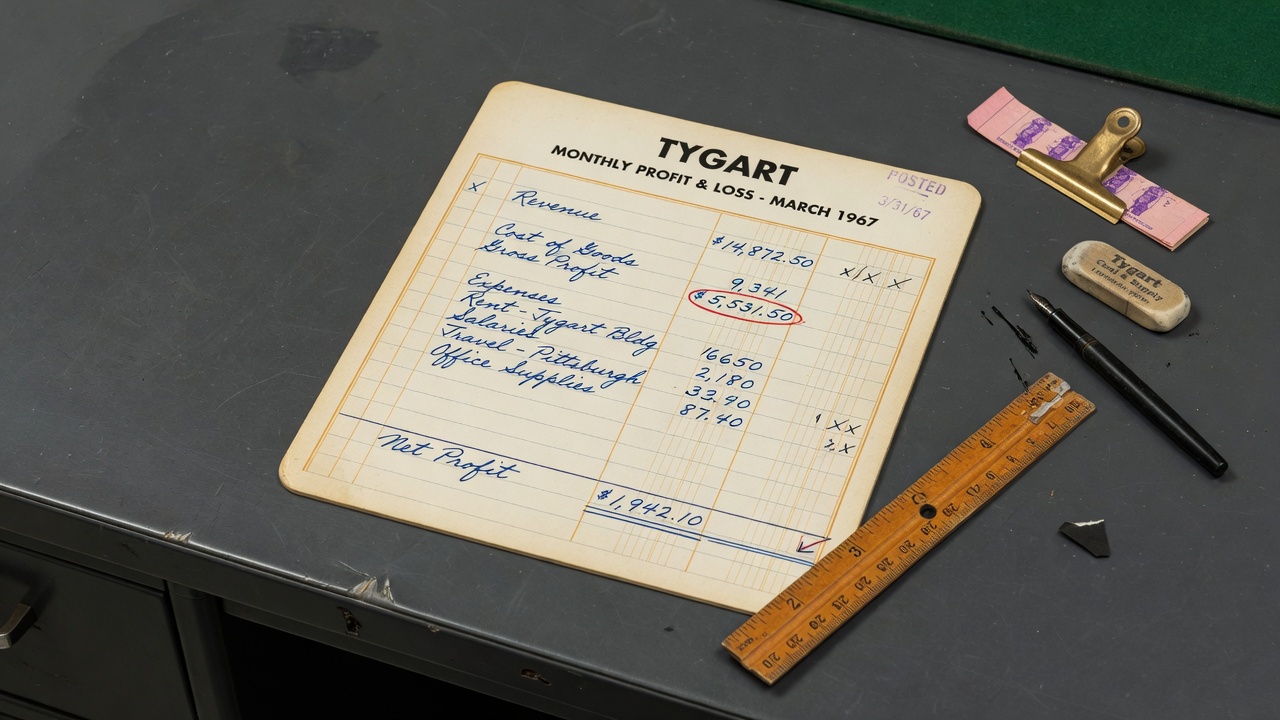 TYGART
MONTHLY PROFIT & LOSS - MARCH 1967
POSTED
3/31/67
x
Revenue $14,872.50 x/x x
Cost of Goods 9,341
Gross Profit $5,531.50
Expenses
Rent - Tygart Bldg 16650
Salaries 2,180
Travel - Pittsburgh 33.90
Office Supplies 87.40
Net Profit $1,942.10
Tygart